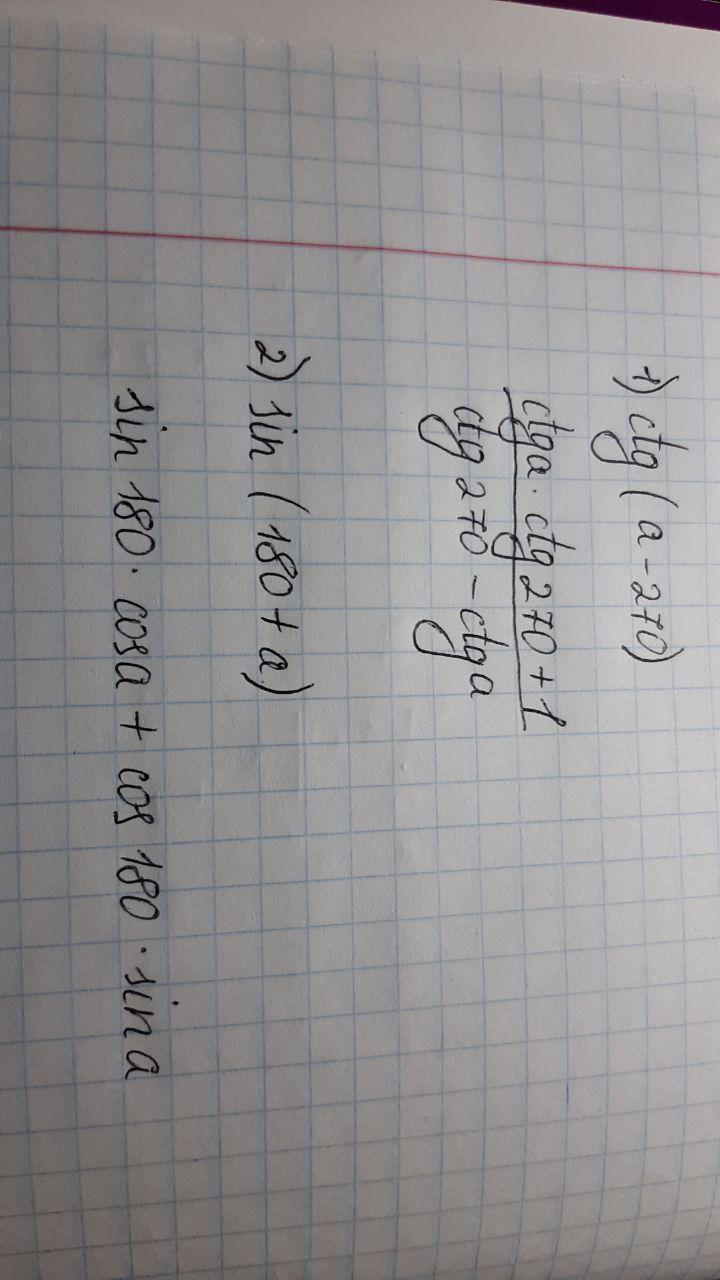 1) ctg (a - 270)
ctga · ctg 270 + 1
ctg 270 - ctg a
2) sin (180 + a)
sin 180 · cosa + cos 180 · sin a